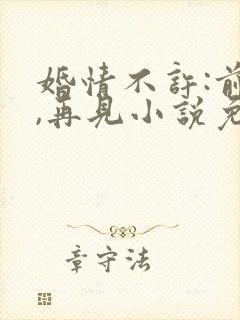 婚情不許:前
,再見小說免
章守法